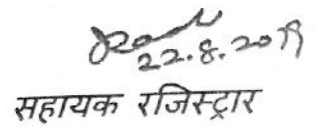 22.8.2019
सहायक रजिस्ट्रार